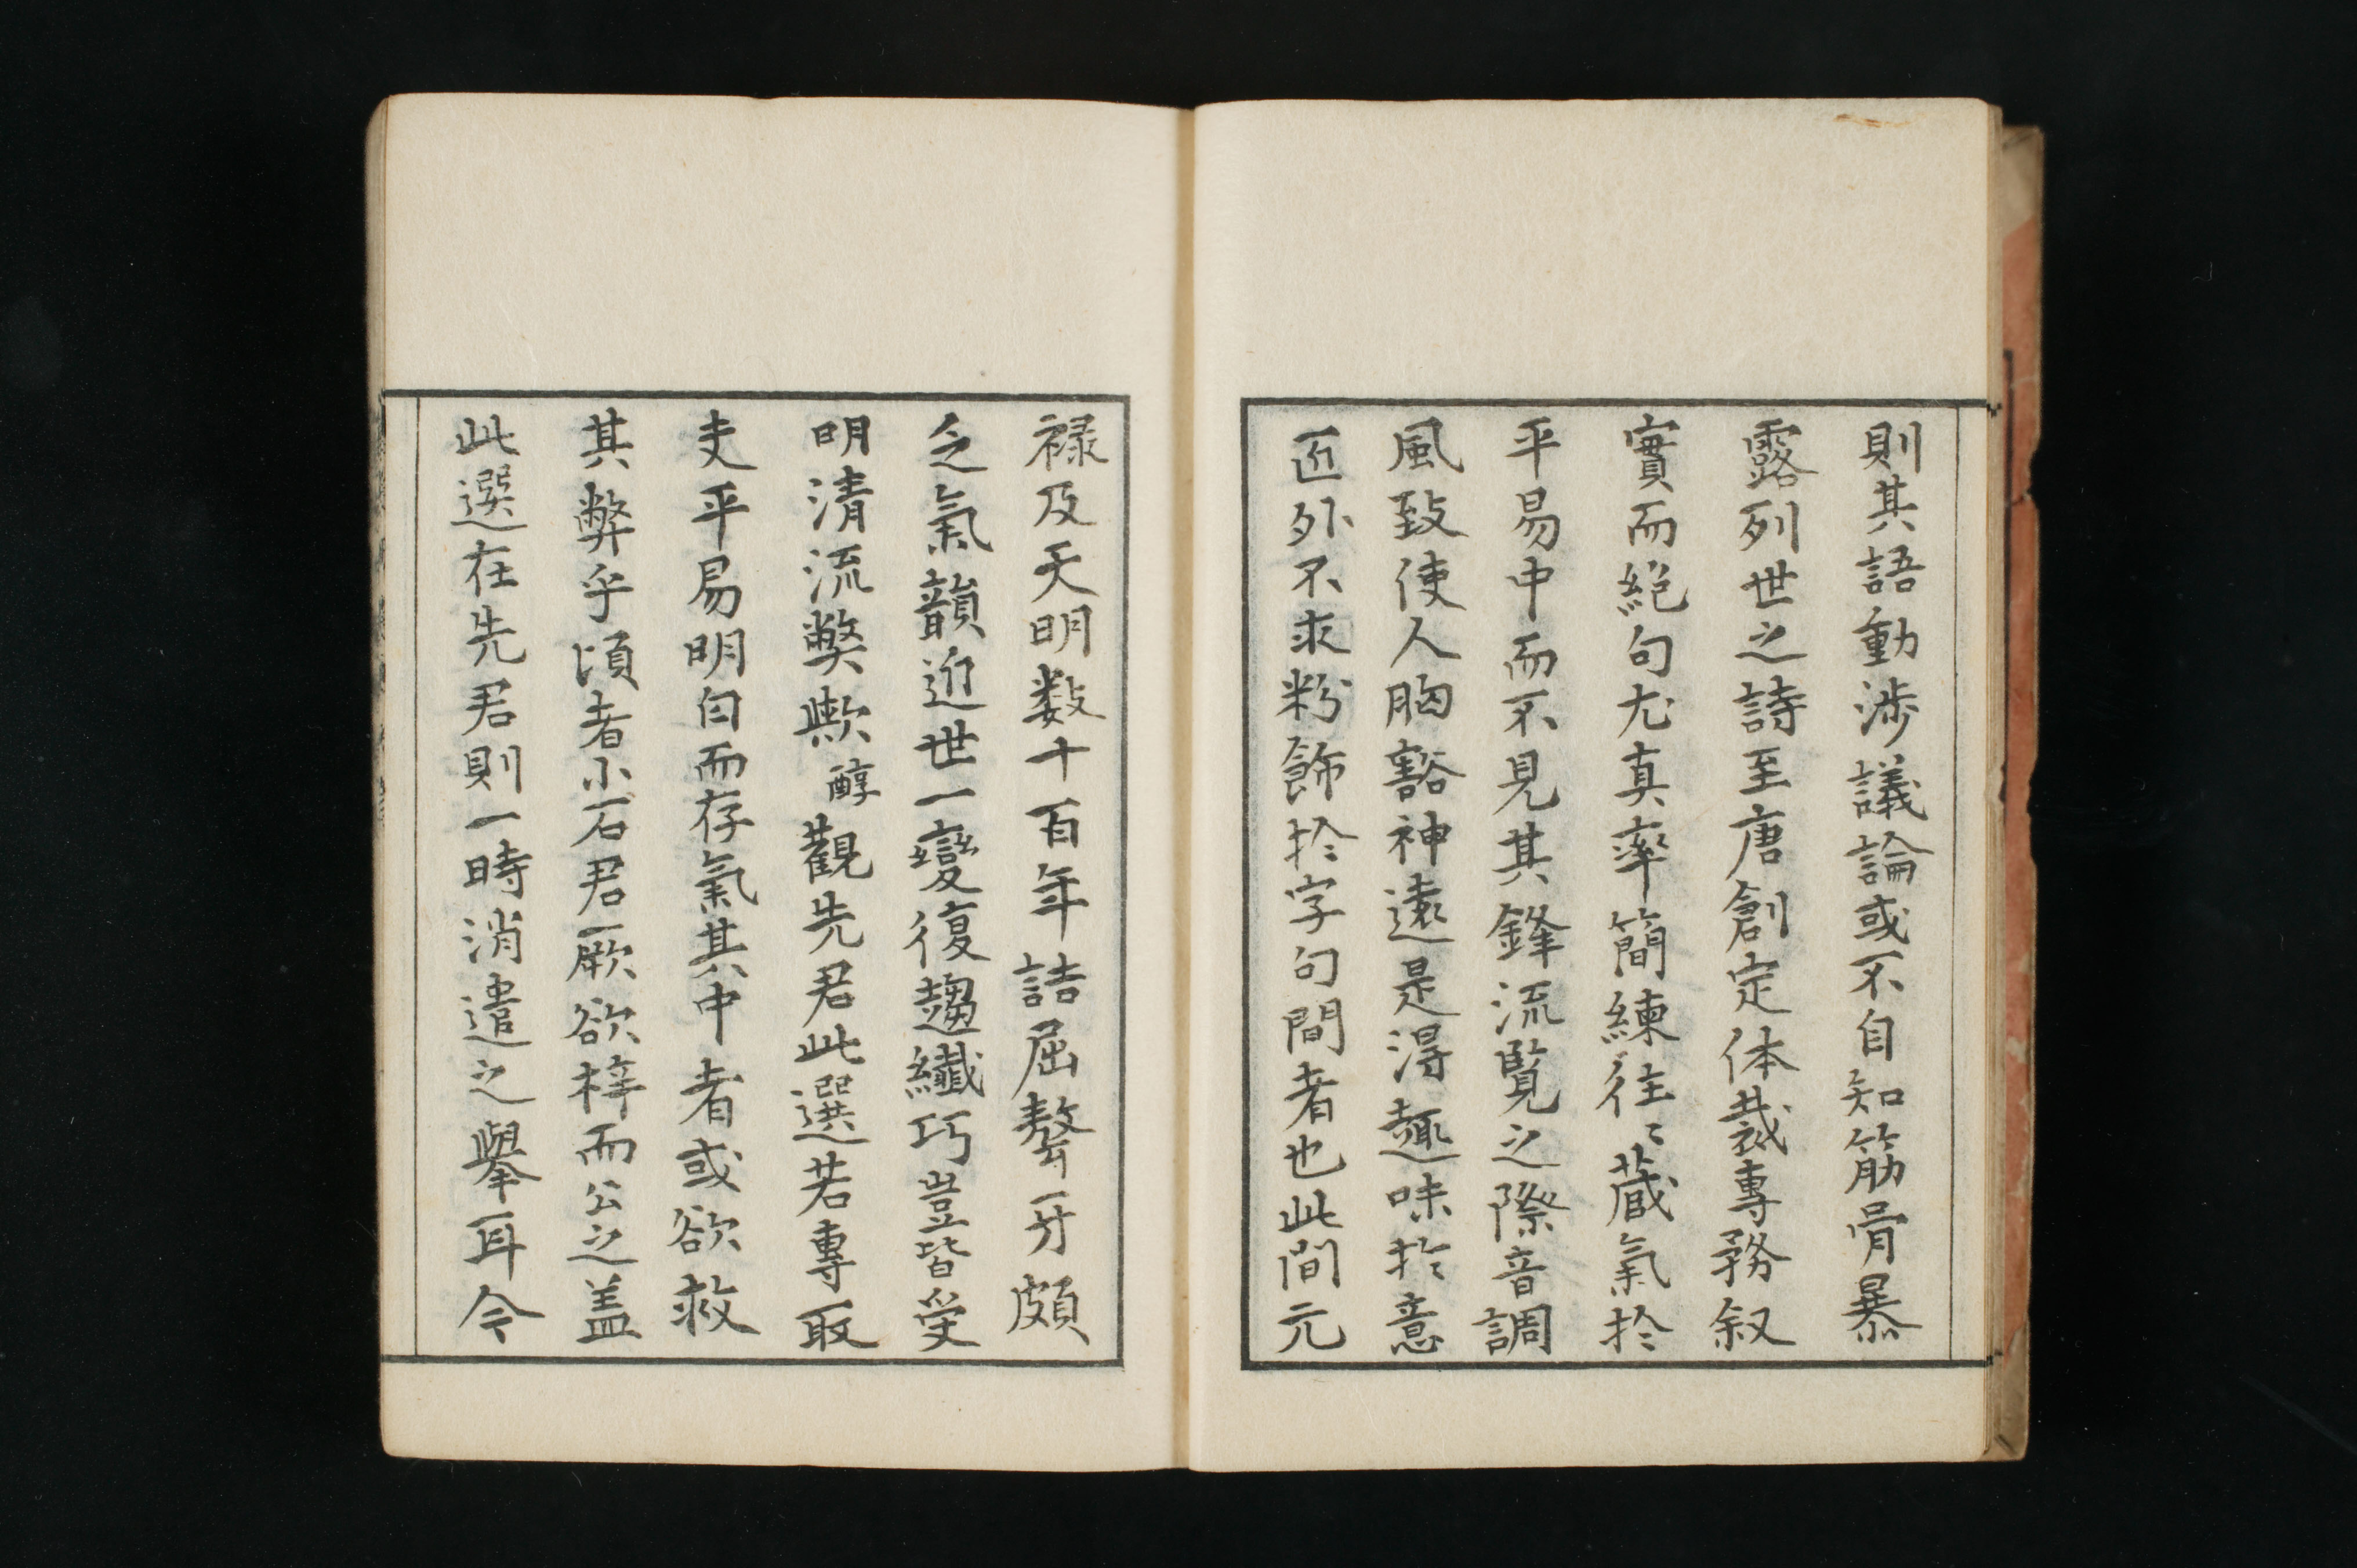 則其語動渉議論或不自知筋骨暴
露列世之詩至唐創定体裁專務叙
實而絕句尤真率簡練往〻蔵氣於
平易中而不見其鋒流覧之際音調
風致使人胸豁神遠是淂趣味於意
匠外不求粉飾於字句間者也此間元
禄及天明数十百年詰屈聱牙頗
乏氣韻近世一變復趨纎巧豈皆受
明清流弊歟醇觀先君此選若專取
夫平易明白而存氣其中者或欲救
其弊乎頃者小石君厥欲梓而公之盖
此選在先君則一時消遣之擧耳今